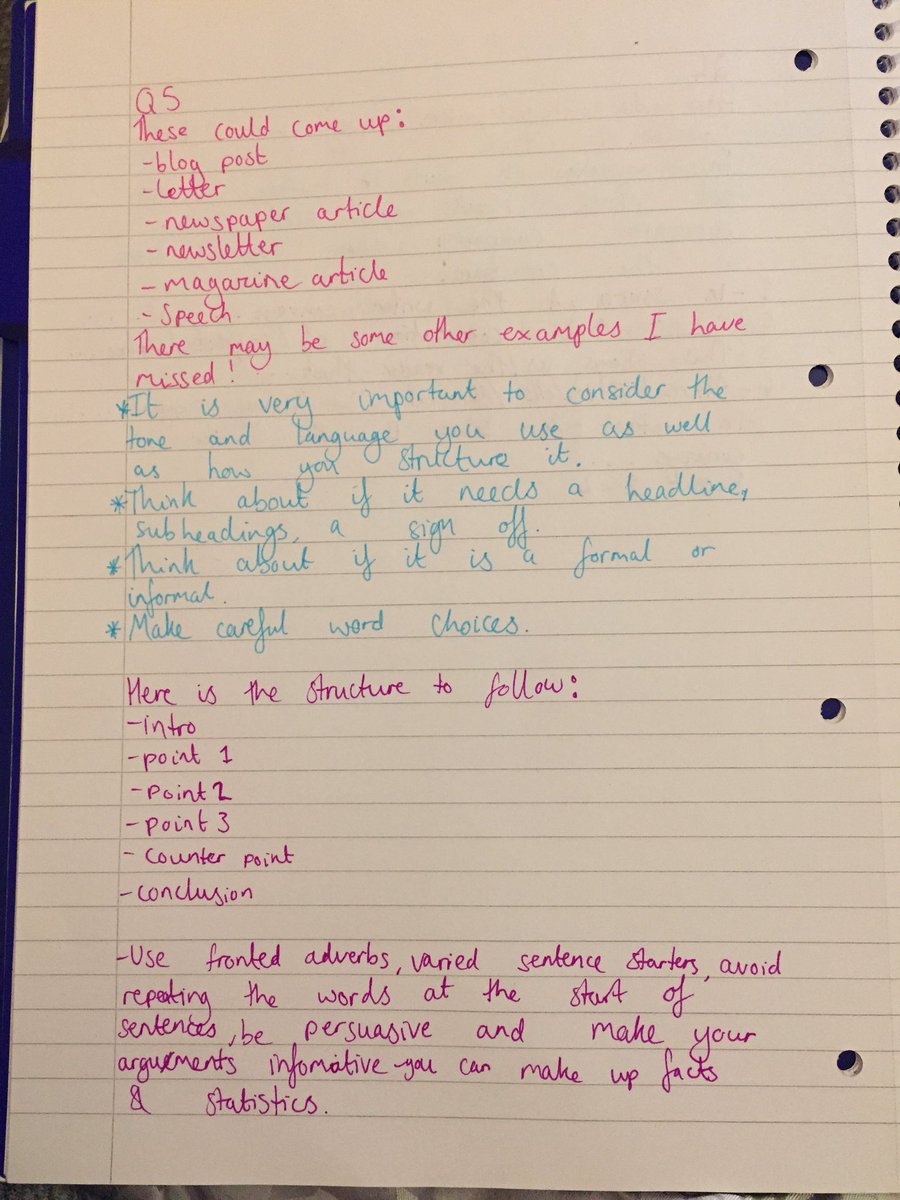 Q5
These could come up:
-blog post
-letter
- newspaper article
- newsletter
- magazine article
- Speech.
There may be some other examples I have
missed!
*It is very important to consider the
tone and language you use as well
as how you structure it.
*Think about if it needs a headline,
subheadings, a sign off.
*Think about if it is a formal or
informal.
*Make careful word choices.
Here is the structure to follow:
-intro
-point 1
-point 2
-point 3
- counter point
-conclusion
-Use fronted adverbs, varied sentence starters, avoid
repeating the words at the start of
sentences, be persuasive and make your
arguements infomative-you can make up facts
& statistics.